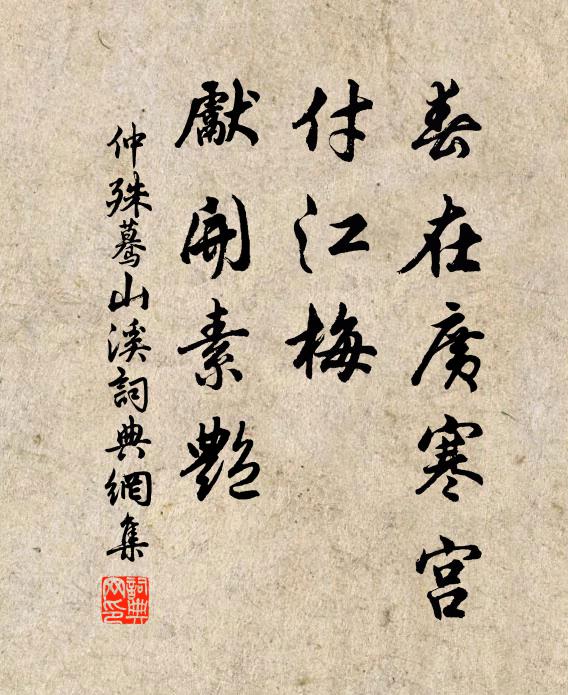 春在廣寒宮
付江梅
獻開素艷
仲殊驀山溪詞典網集
詞典網印